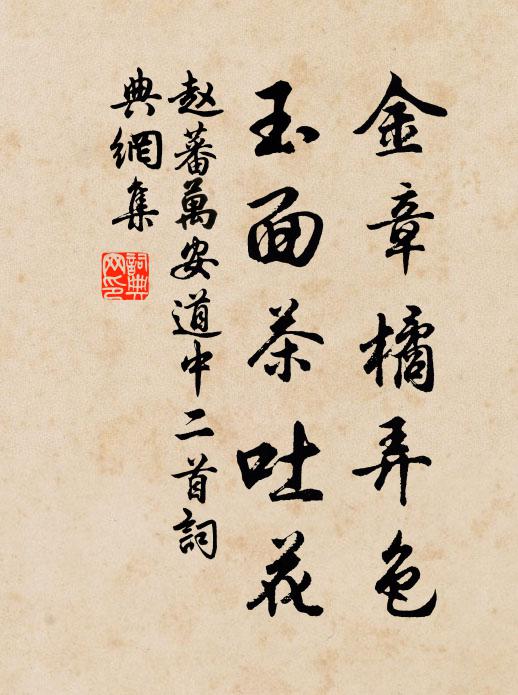 金章橘弄色
玉面茶吐花
赵蕃萬安道中二首詞
典網集
詞典
网印